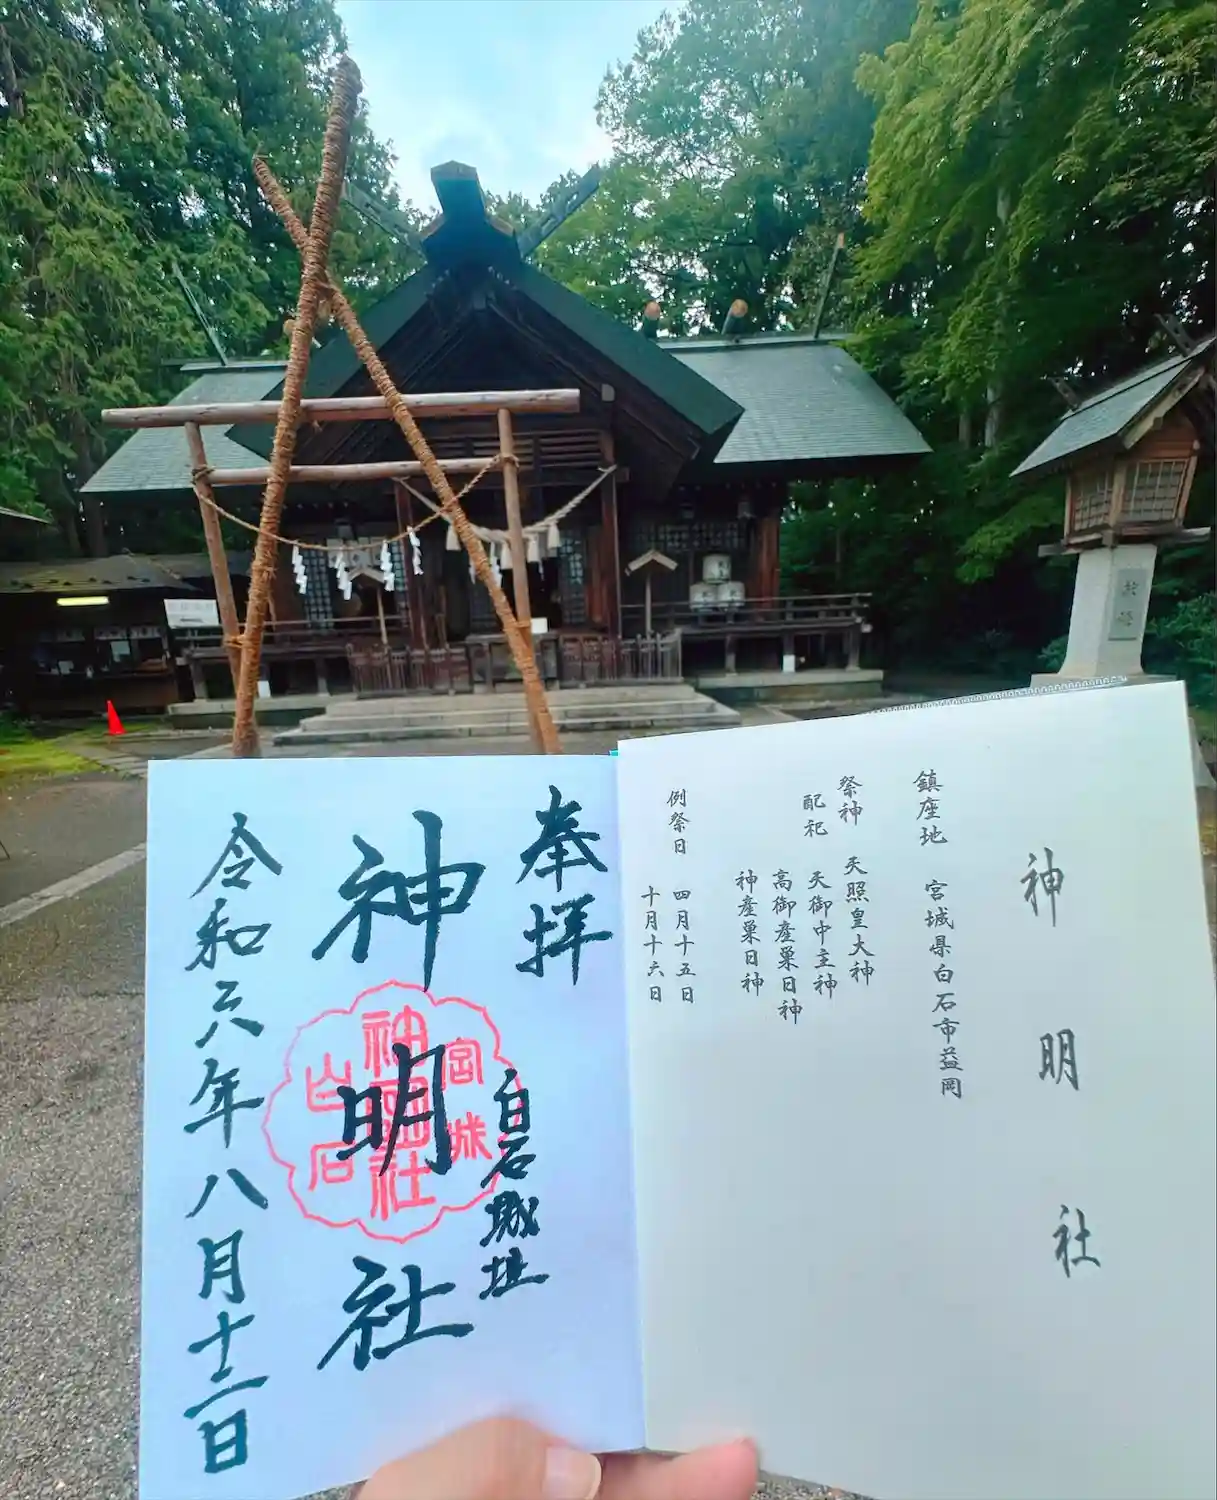 神明社
鎮座地 宮城県白石市益岡
祭神 天照皇大神
配祀 天御中主神
高御産巣日神
神産巣日神
例祭日 四月十五日
十月十六日
奉拝
白石城址
神明社
宮城
神明社
白石
令和六年八月十二日